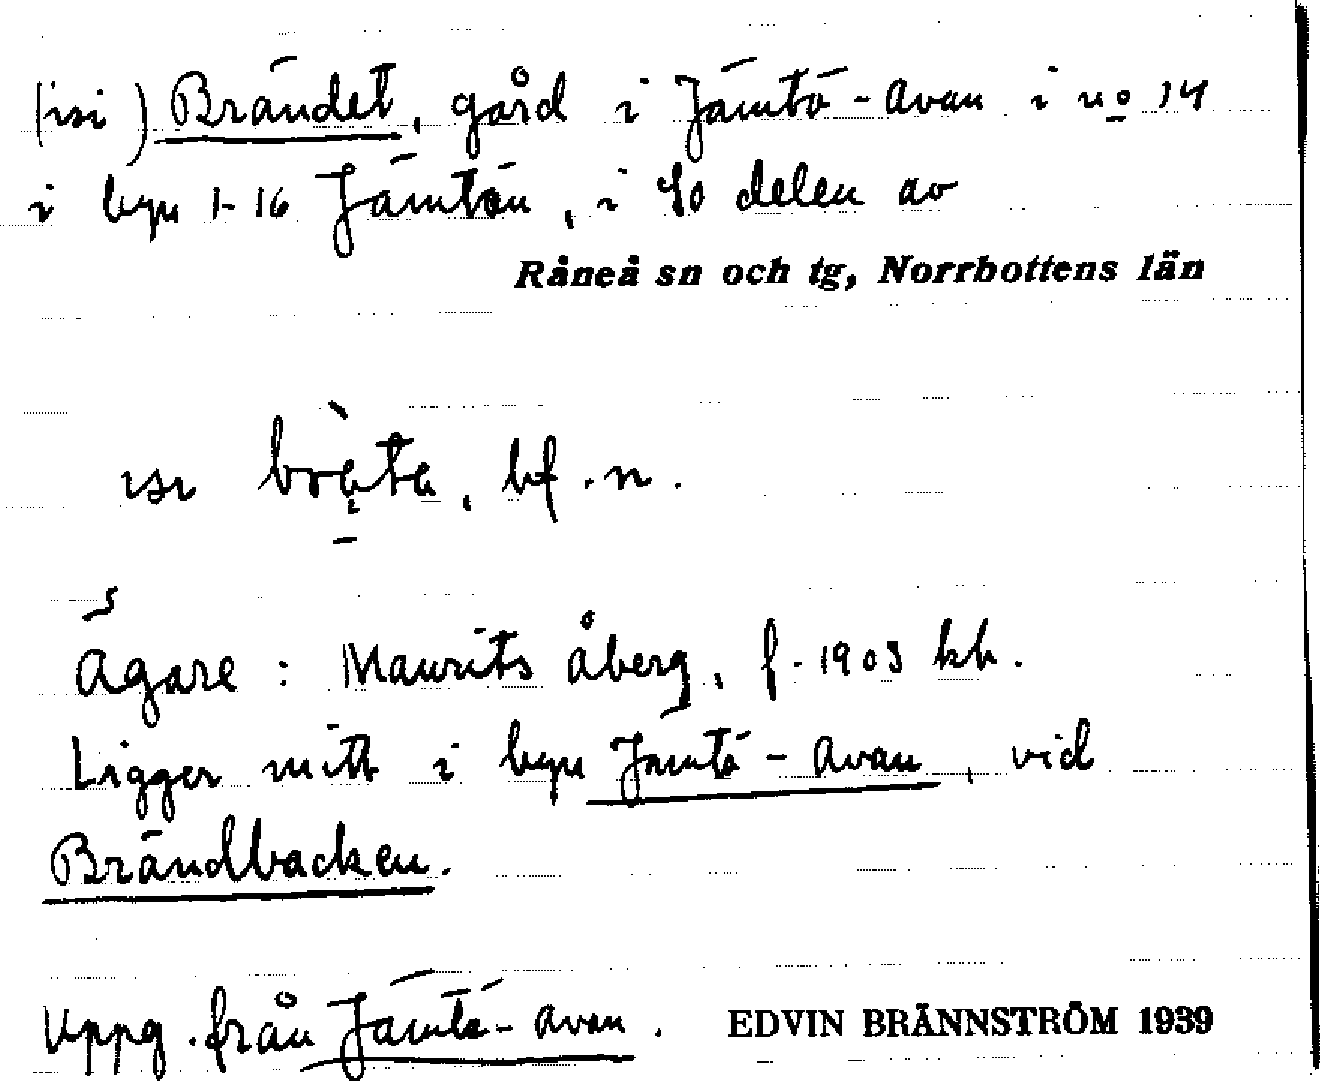 (isi) Brändet, gård i Jämtö-Avan i no 14
i byn 1-16 Jämtön, i SO delen av
Råneå sn och tg, Norrbottens län
isi, bf. n.
Ägare: Maurits Åberg, f. 1903 kh.
Ligger mitt i byn Jämtö-Avan, vid
Brändbacken.
Uppg. från Jämtö-Avan. EDVIN BRÄNNSTRÖM 1939